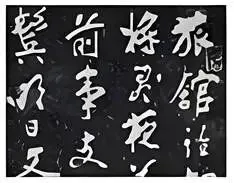 旅館誰
將盡夜
前事支
鬢明日又